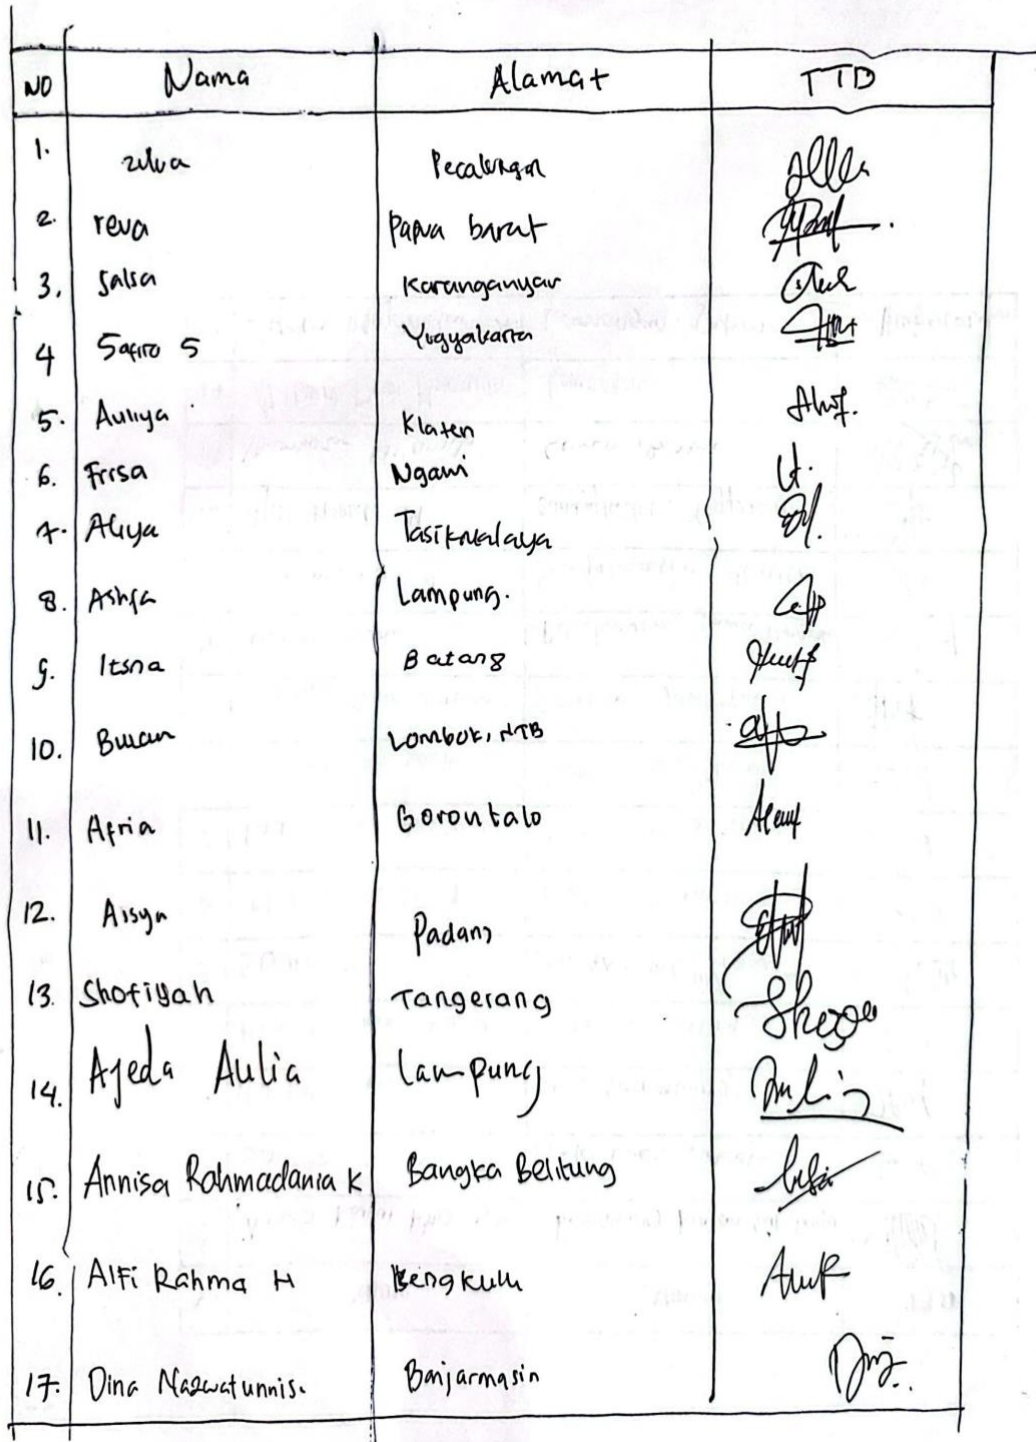 NO Nama Alamat TTD
1. zulva Pecalongan
2. reva Papua barat
3. Salsa Karanganyar
4 Safiro S Yogyakarta
5. Auliya Klaten
6. Frisa Ngawi
7. Aliya Tasikmalaya
8. Ashfa Lampung.
9. Itsna Batang
10. Bulan Lombok, NTB
11. Afria Gorontalo
12. Aisya Padang
13. Shofiyah Tangerang
14. Ajeda Aulia Lampung
15. Annisa Rahmadania K Bangka Belitung
16. Alfi Rahma H Bengkulu
17. Dina Nazwatunnis. Banjarmasin